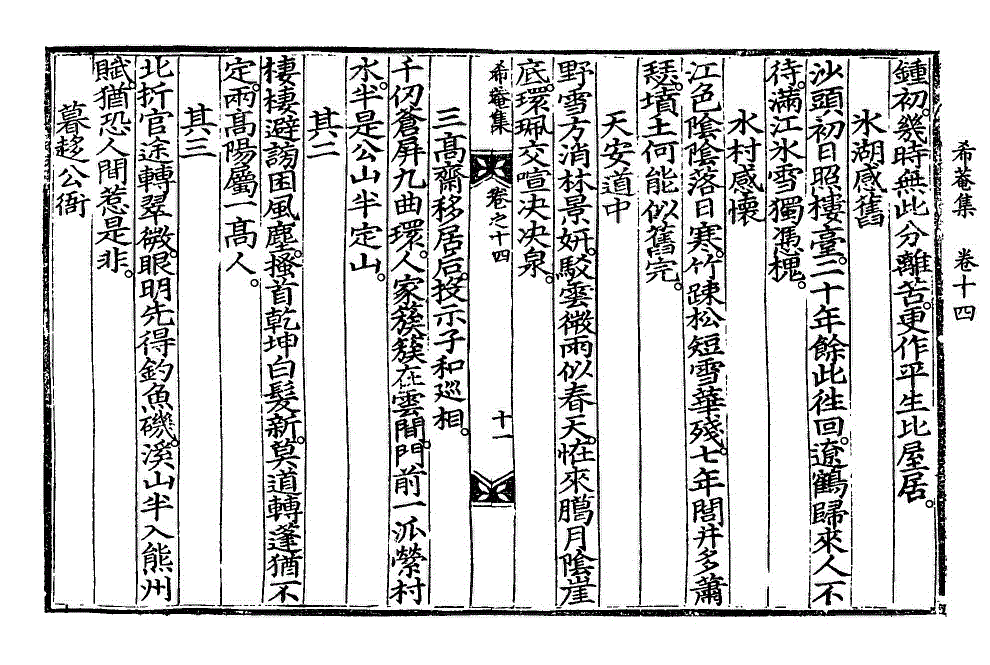 希菴集　卷十四
鍾初。幾時無此分離苦。更作平生比屋居。
氷湖感舊
沙頭初日照樓臺。二十年餘此往回。遼鶴歸來人不
待。滿江氷雪獨憑槐。
水村感懷
江色陰陰落日寒。竹踈松短雪華殘。七年閭井多蕭
瑟。墳土何能似舊完。
天安道中
野雪方消林景妍。駁雲微雨似春天。怪來臘月陰崖
底。環珮交喧决决泉。
希菴集　卷之十四　十一
三高齋移居后。投示子和巡相。
千仞蒼屏九曲環。人家簇簇在雲間。門前一派縈村
水。半是公山半定山。
其二
棲棲避謗困風塵。搔首乾坤白髮新。莫道轉蓬猶不
定。兩高陽屬一高人。
其三
北折官途轉翠微。眼明先得釣魚磯。溪山半入熊州
賦。猶恐人間惹是非。
暮趍公衙